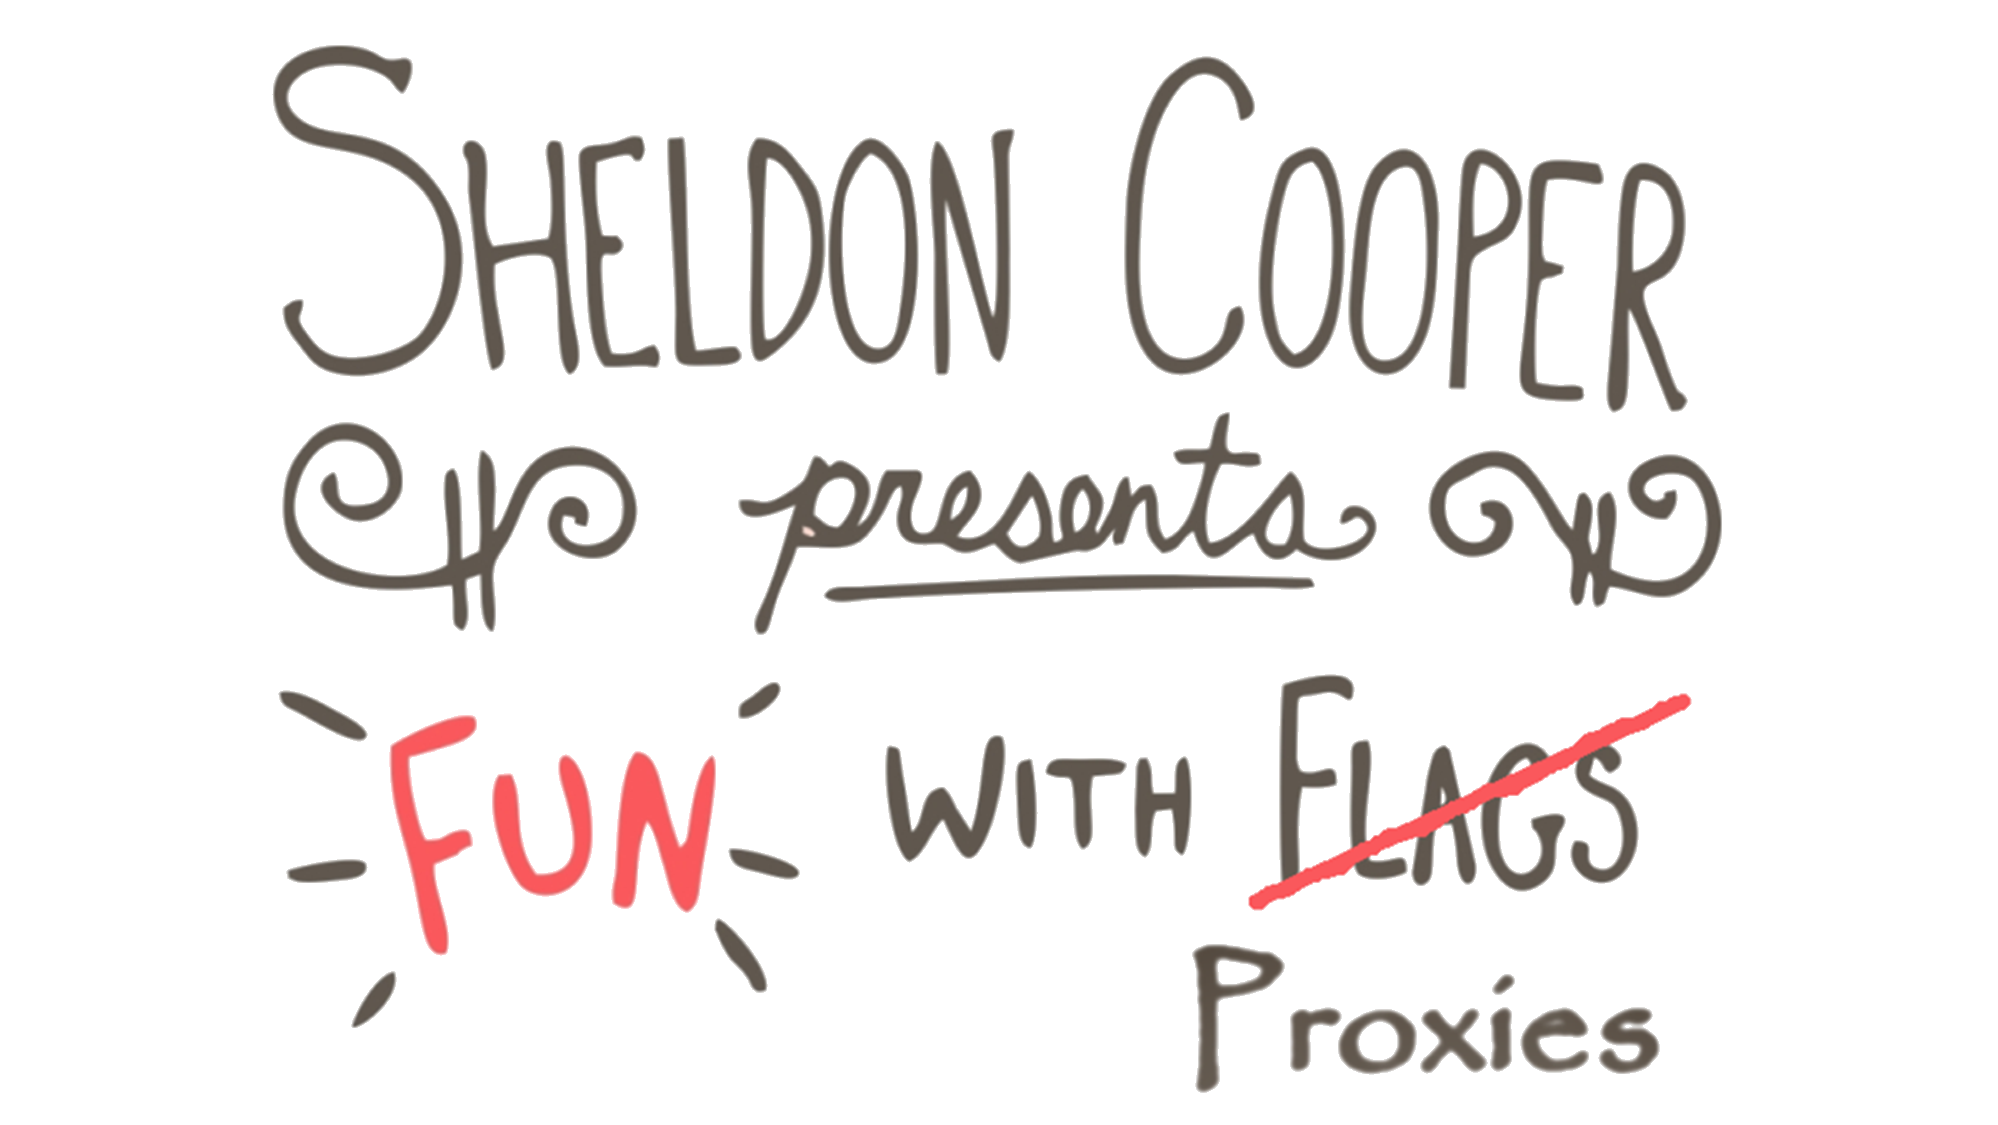 SHELDON COOPER
presents
FUN WITH FLAGS
Proxies